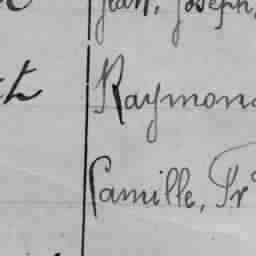 Jean, Joseph,
Raymond
Camille, Fr